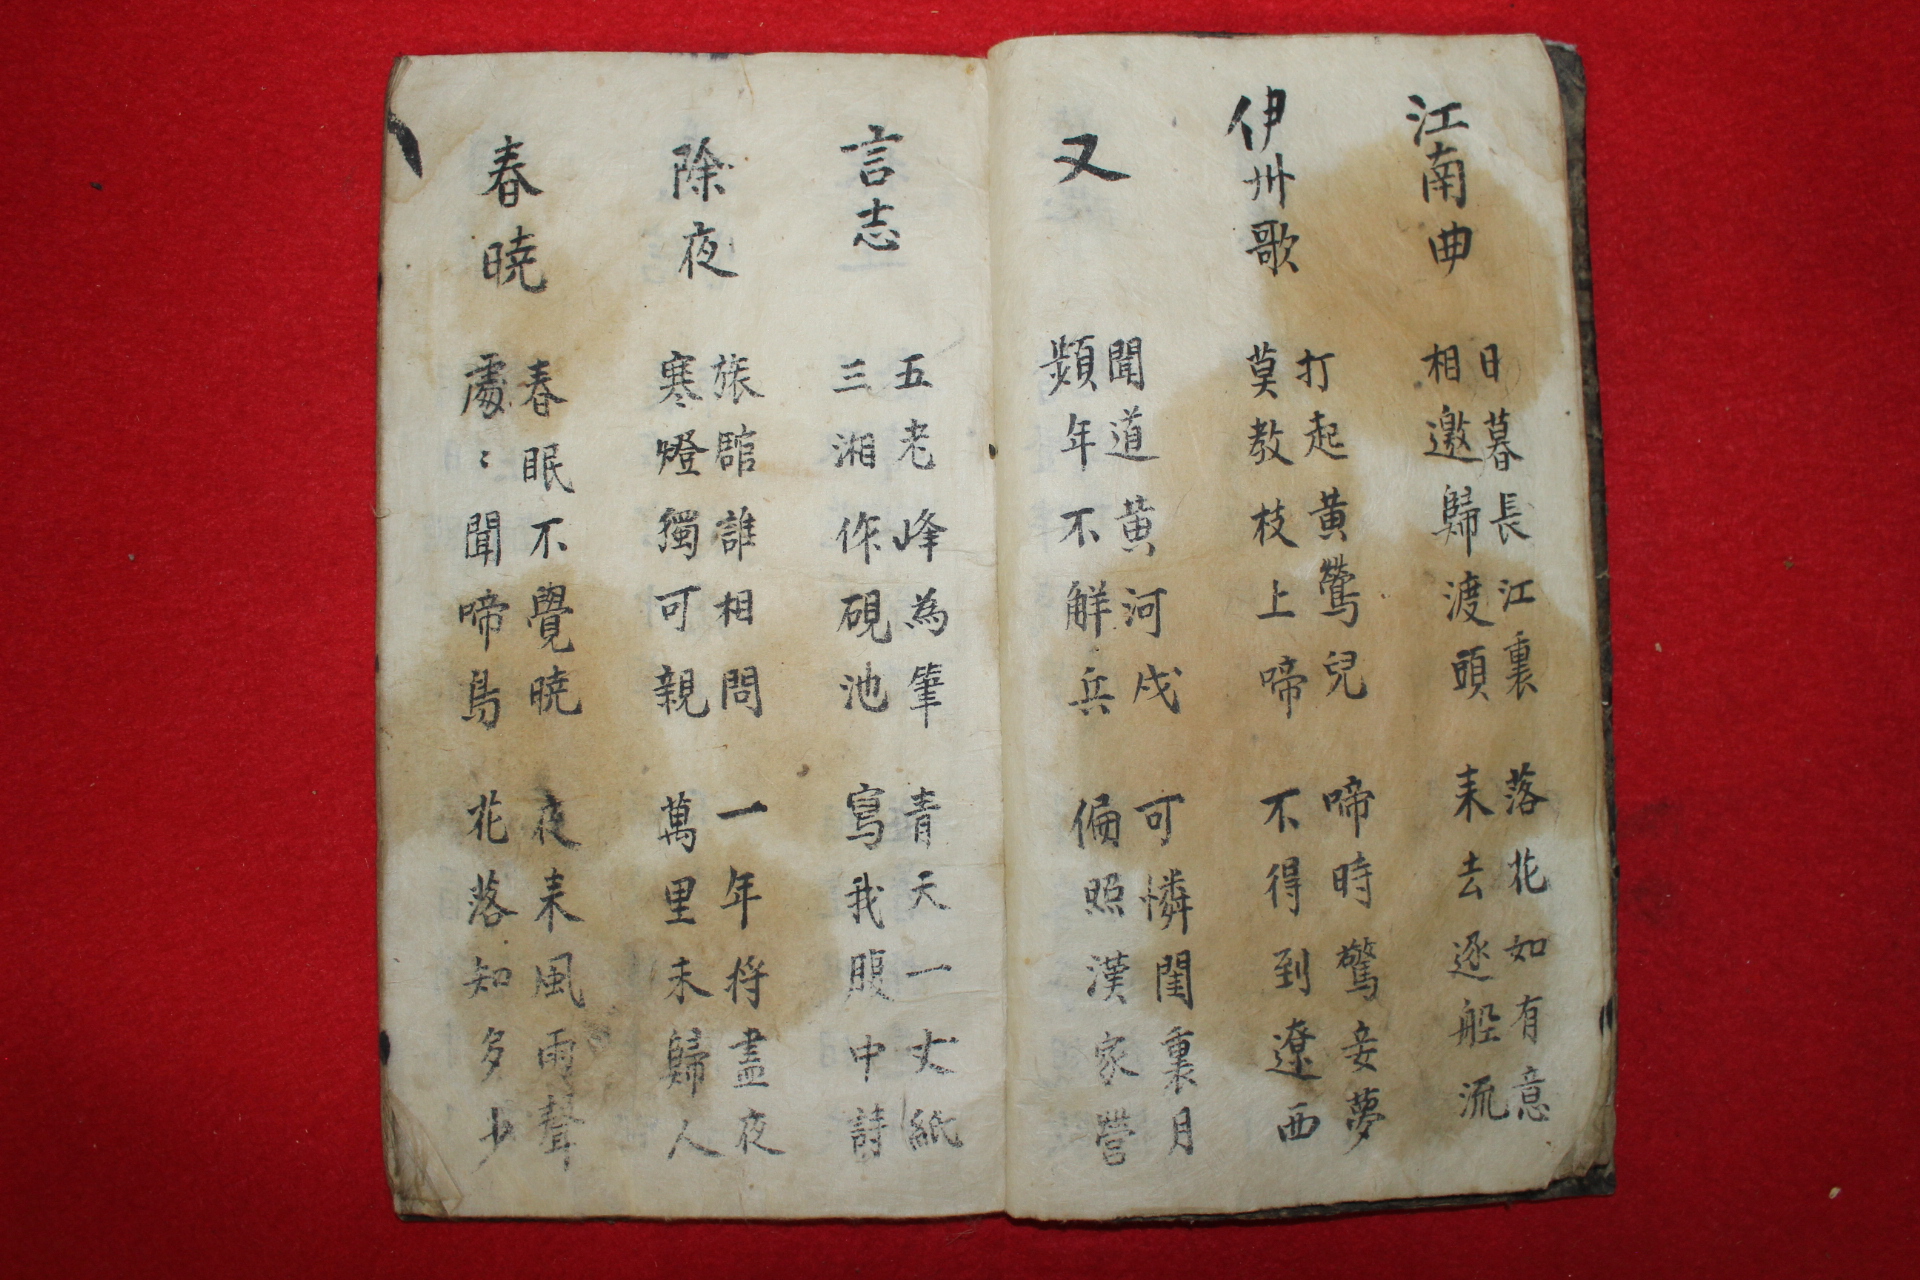 江南曲
日暮長江裏 落花如有意
相邀歸渡頭 来去逐舩流
伊州歌
打起黃鶯兒 啼時驚妾夢
莫教枝上啼 不得到遼西
又
聞道黃河戍 可憐閨裏月
頻年不觧兵 偏照漢家營
言志
五老峰為筆 青天一丈紙
三湘作硯池 寫我腹中詩
除夜
旅館誰相問 一年将盡夜
寒燈獨可親 萬里未歸人
春曉
春眠不覺曉 夜来風雨聲
處〻聞啼鳥 花落知多少